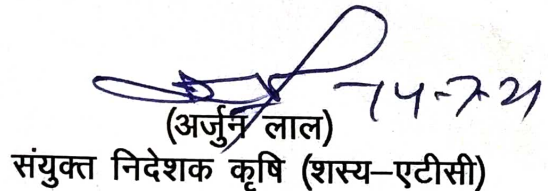 14-7-21
(अर्जुन लाल)
संयुक्त निदेशक कृषि (शस्य–एटीसी)